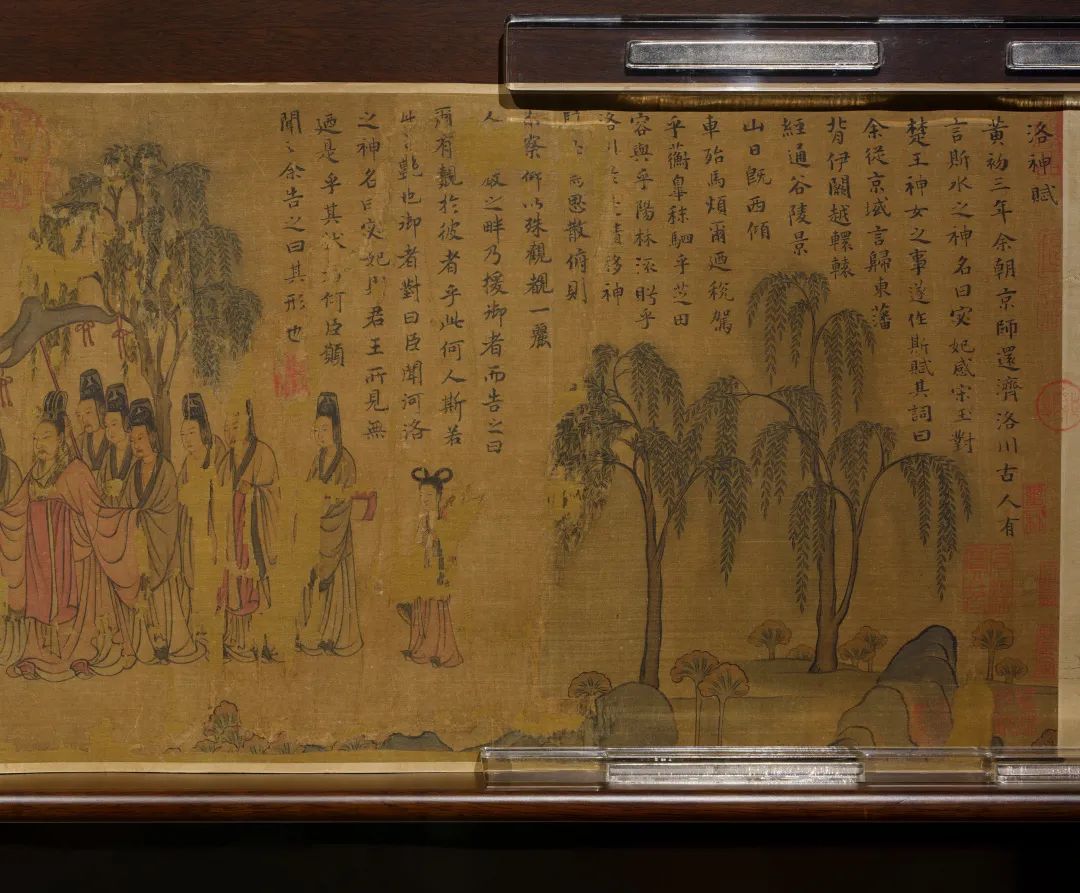 洛神賦
黃初三年余朝京師還濟洛川古人有
言斯水之神名曰宓妃感宋玉對
楚王神女之事遂作斯賦其詞曰
余從京域言歸東藩
背伊闕越轘轅
經通谷陵景
山日既西傾
車殆馬煩爾迺稅駕
乎蘅皐秣駟乎芝田
容與乎陽林流眄乎
洛川於是精移神
思散俯則
察仰以殊觀覩一麗
人 之畔乃援御者而告之曰
爾有覿於彼者乎此何人斯若
此之艷也御者對曰臣聞河洛
之神名曰宓妃 君王所見無
迺是乎其狀 何臣願
聞之余告之曰其形也